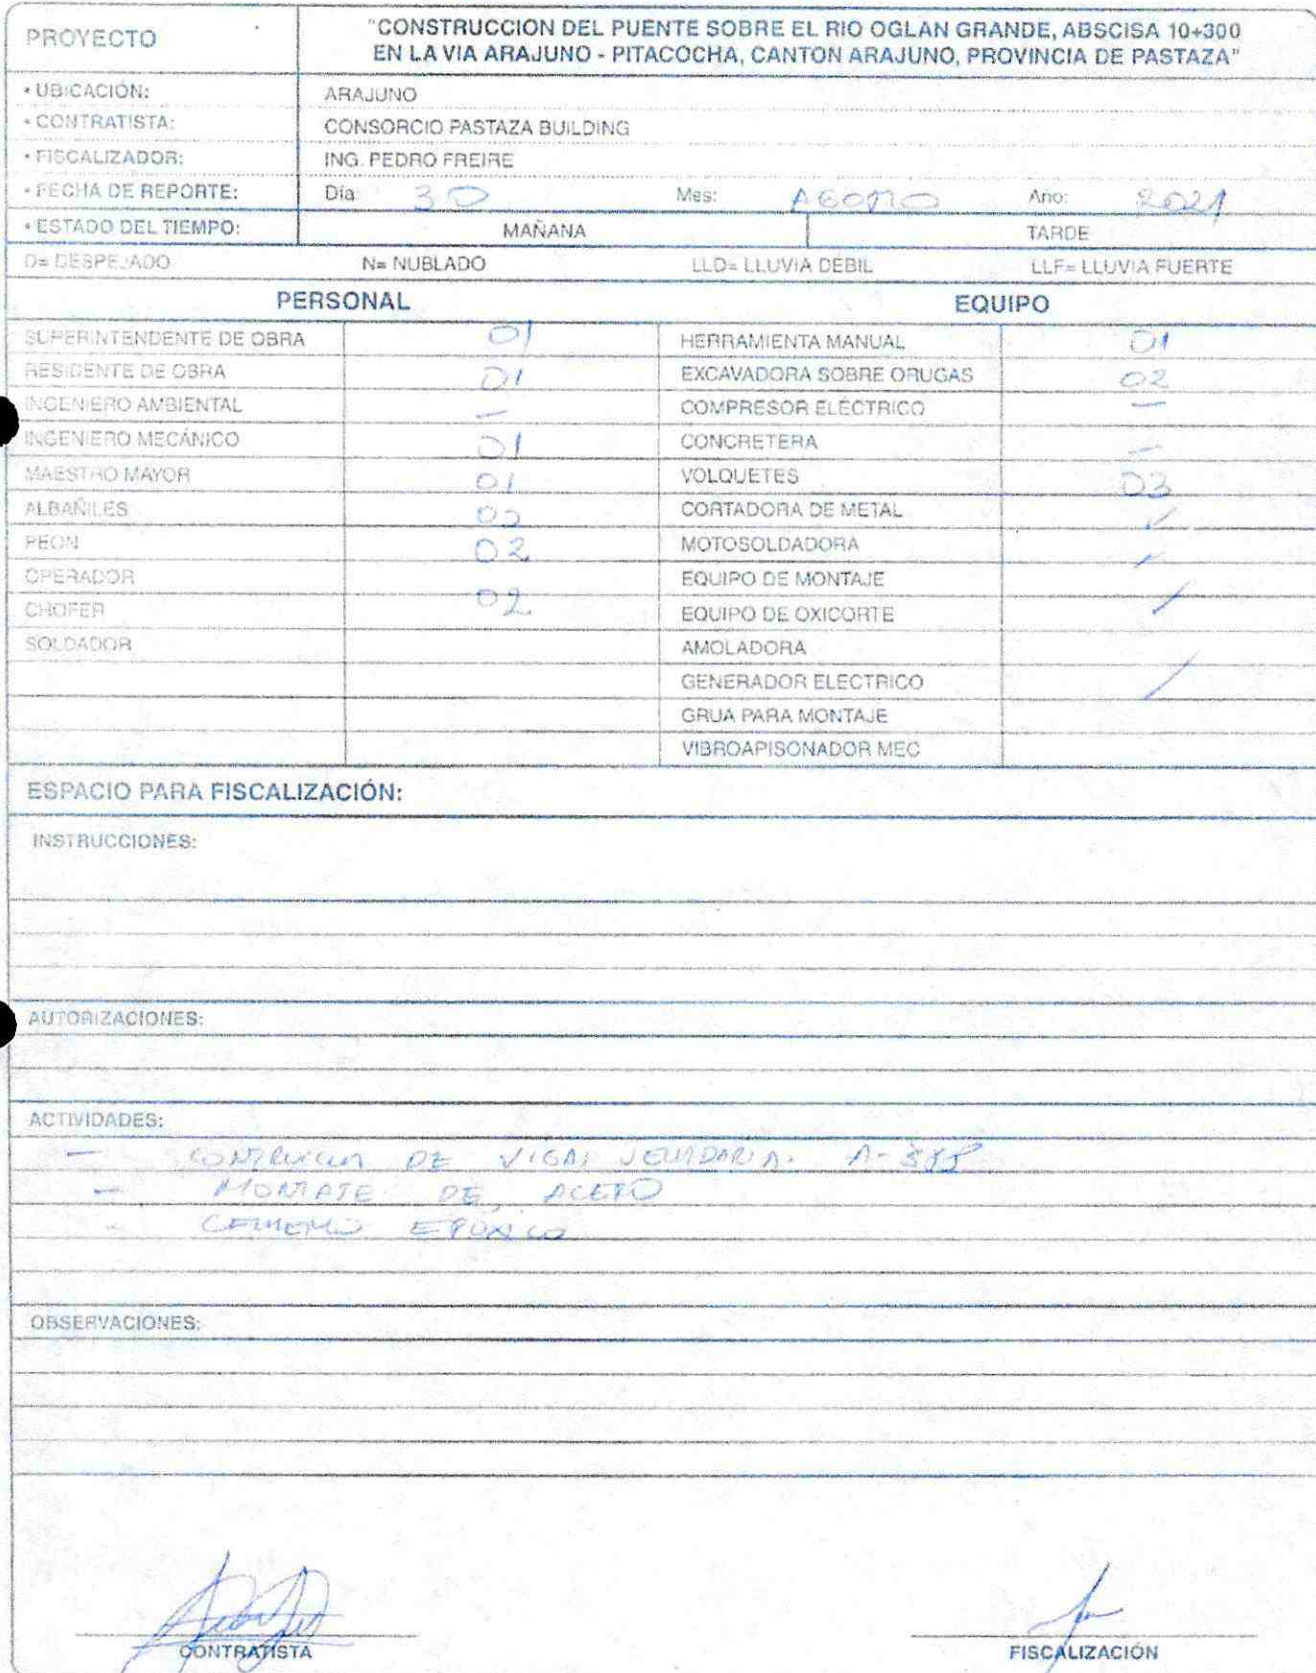 PROYECTO
"CONSTRUCCION DEL PUENTE SOBRE EL RIO OGLAN GRANDE, ABSCISA 10+300
EN LA VIA ARAJUNO - PITACOCHA, CANTON ARAJUNO, PROVINCIA DE PASTAZA"
• UBICACIÓN: ARAJUNO
• CONTRATISTA: CONSORCIO PASTAZA BUILDING
• FISCALIZADOR: ING. PEDRO FREIRE
• FECHA DE REPORTE: Día: 30 Mes: AGOSTO Ano: 2021
• ESTADO DEL TIEMPO: MAÑANA TARDE
D= DESPEJADO N= NUBLADO LLD= LLUVIA DÉBIL LLF= LLUVIA FUERTE
PERSONAL EQUIPO
SUPERINTENDENTE DE OBRA 01 HERRAMIENTA MANUAL 01
RESIDENTE DE OBRA 01 EXCAVADORA SOBRE ORUGAS 02
INGENIERO AMBIENTAL — COMPRESOR ELÉCTRICO —
INGENIERO MECÁNICO 01 CONCRETERA —
MAESTRO MAYOR 01 VOLQUETES 03
ALBAÑILES CORTADORA DE METAL ✓
PEON 02 MOTOSOLDADORA ✓
OPERADOR EQUIPO DE MONTAJE
CHOFER 02 EQUIPO DE OXICORTE /
SOLDADOR AMOLADORA
GENERADOR ELECTRICO /
GRUA PARA MONTAJE
VIBROAPISONADOR MEC
ESPACIO PARA FISCALIZACIÓN:
INSTRUCCIONES:
AUTORIZACIONES:
ACTIVIDADES:
— DE VIGAS A-588
— MONTAJE DE ACERO
- CEMENTO EPOXICO
OBSERVACIONES:
CONTRATISTA FISCALIZACIÓN